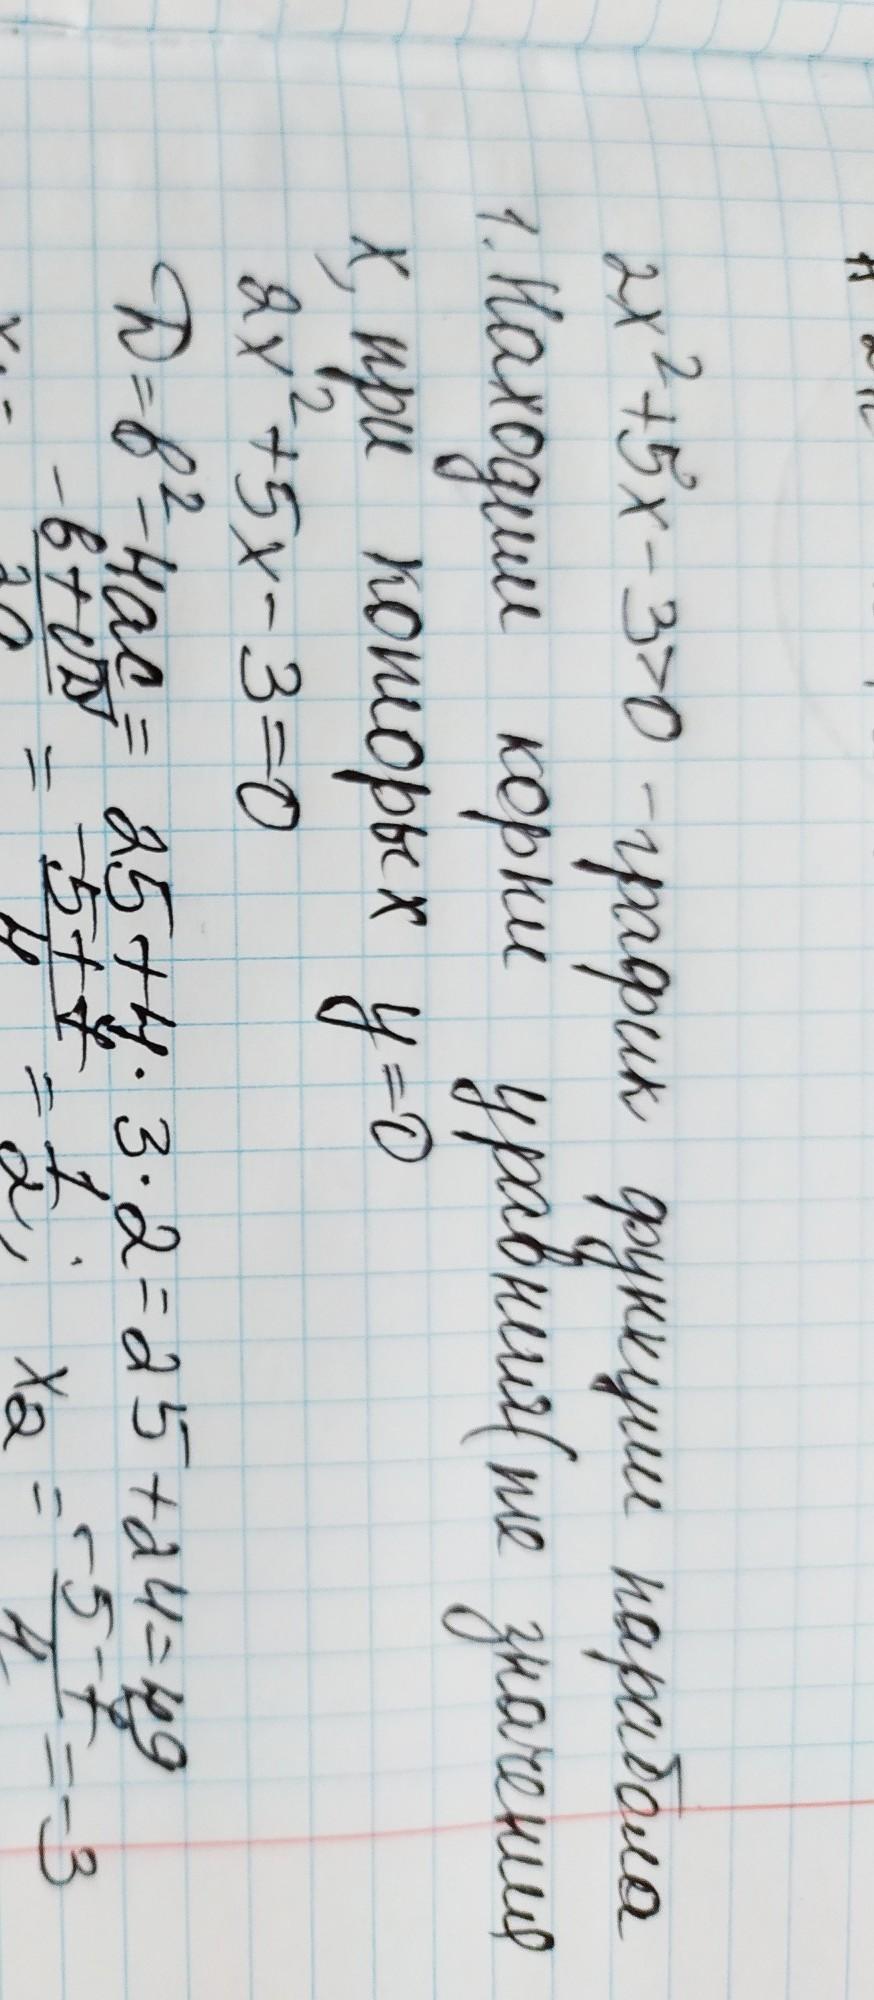 2x²+5x-3>0 - график функции парабола
1. Находим корни уравнения(те значения
x, при которых y=0
2x²+5x-3=0
D=b²-4ac=25+4·3·2=25+24=49
x₁=\frac{-b+√D}{2a}=\frac{-5+7}{4}=\frac{1}{2}; x₂=\frac{-5-7}{4}=-3